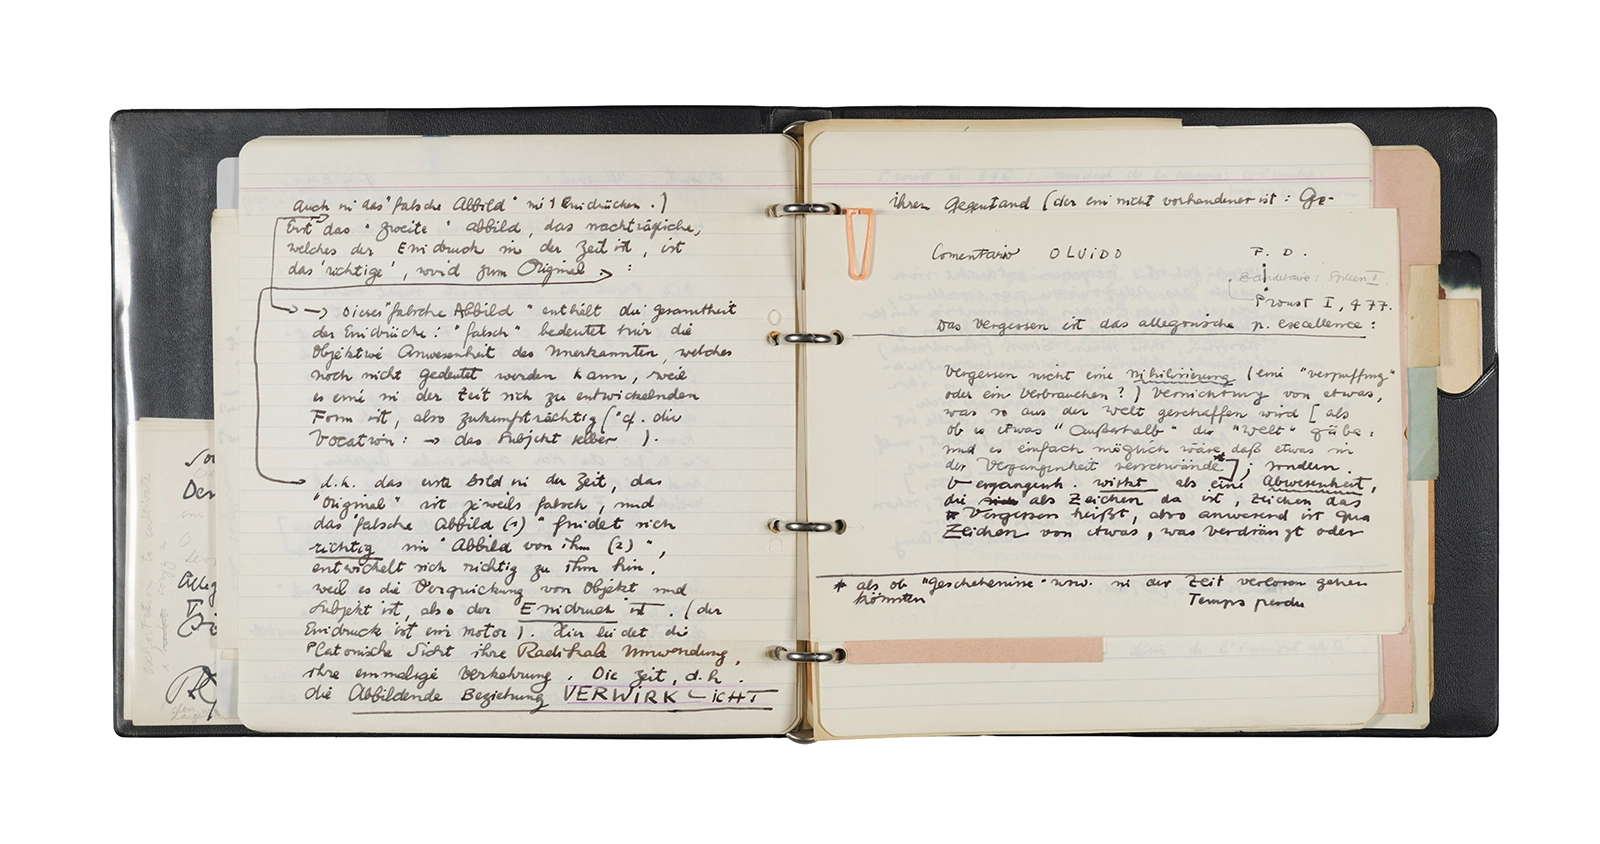 auch in das "falsche Abbild" mit Eindrücken.)
Erst das "zweite" Abbild, das nachträgliche,
welches der Eindruck in der Zeit ist, ist
das 'richtige', wird zum Original :
→ Dieses "falsche Abbild" enthält die Gesamtheit
der Eindrücke: "falsch" bedeutet hier die
Objektive Anwesenheit des Unerkannten, welches
noch nicht gedeutet werden kann, weil
es eine in der Zeit sich zu entwickelnden
Form ist, also zukunftsträchtig (cf. die
Vocation: → das Subjekt selber ).
d.h. das erste Bild in der Zeit, das
"Original" ist jeweils falsch, und
das "falsche Abbild (1)" findet sich
richtig im "Abbild von ihm (2)",
entwickelt sich richtig zu ihm hin,
weil es die Verquickung von Objekt und
Subjekt ist, also der Eindruck ist. (der
Eindruck ist ein Motor). Hier leidet die
Platonische Sicht ihre Radikale Umwendung,
ihre einmalige Verkehrung. Die Zeit, d.h.
die Abbildende Beziehung VERWIRKLICHT
ihren Gegenstand (der ein nicht vorhandener ist: Ge-
Comentario OLVIDO F. D.
Baudelaire: Spleen II
Proust I, 477.
Das Vergessen ist das allegorische p. excellence:
Vergessen nicht eine Nihilisierung (eine "Verpuffung"
oder ein Verbrauchen?) Vernichtung von etwas,
was so aus der Welt geschaffen wird [als
ob es etwas "Außerhalb" der "Welt" gäbe:
und es einfach möglich wäre, daß etwas in
der Vergangenheit verschwände*]; sondern.
Vergangenh. wirkt als eine Abwesenheit,
die als Zeichen da ist, Zeichen das
Vergessen heißt, also anwesend ist qua
Zeichen von etwas, was verdrängt oder
* als ob "Geschehenisse" usw. in der Zeit verloren gehen
könnten Temps perdu